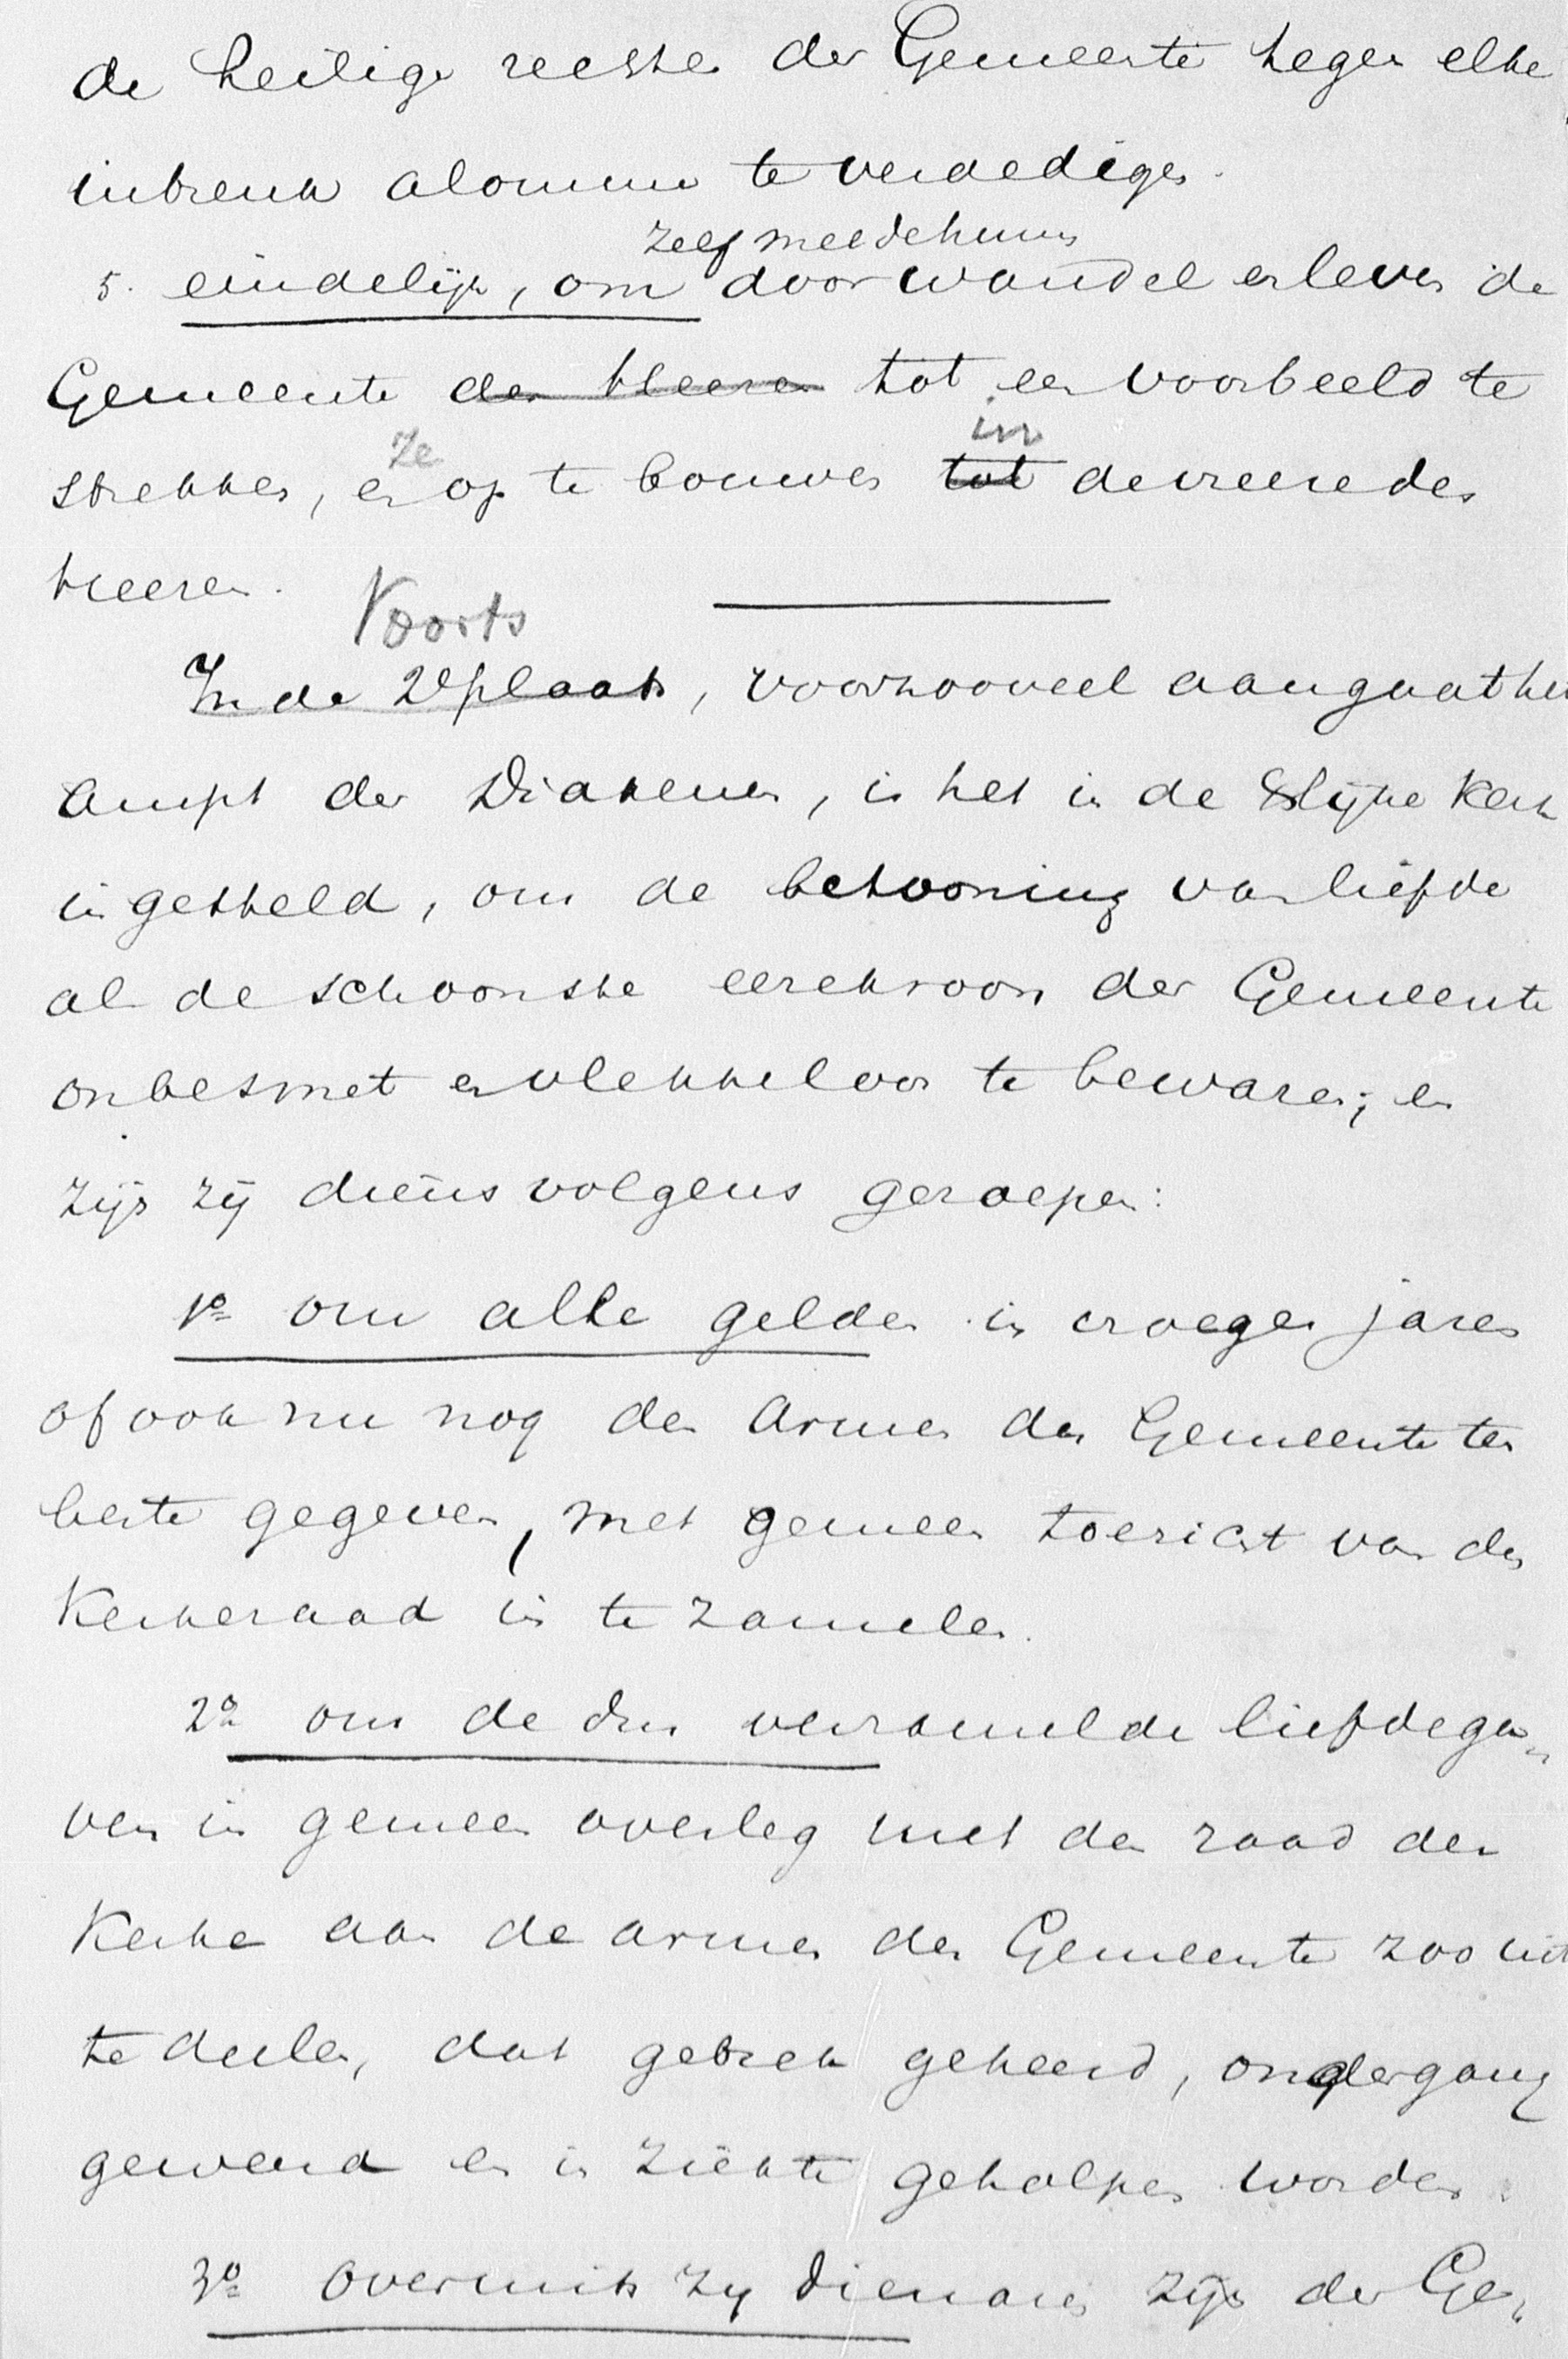 de heilige rechten der Gemeente tegen elke
inbreuk alomme te verdedigen.
zelf meede
5. eindelijk, om door wandel en leven de
Gemeente des Heeren tot een voorbeeld te
in
strekken, en ze op te bouwen tot de vreeze des
Heeren.
Voorts
In de 2e plaats, voorzooveel aangaat het
Ampt der Diakenen, is het in de Kerk
ingesteld, om de betooning van liefde
als de schoonste eerekroon der Gemeente
onbesmet en vlekkeloos te bewaren; en
zijn zij diensvolgens geroepen:
1o om alle gelden in vroeger jaren
of ook nu nog den Armen der Gemeente ten
beste gegeven, met gemeen toezicht van den
Kerkeraad in te zamelen.
2o om de dus verzamelde liefdega„
ven in gemeen overleg met den raad der
Kerke aan de armen der Gemeente zoo uit
te deelen, dat gebrek geweerd, ondergang
gewend en in ziekte geholpen worden.
3o overmits zy dienaren zijn der Ge„